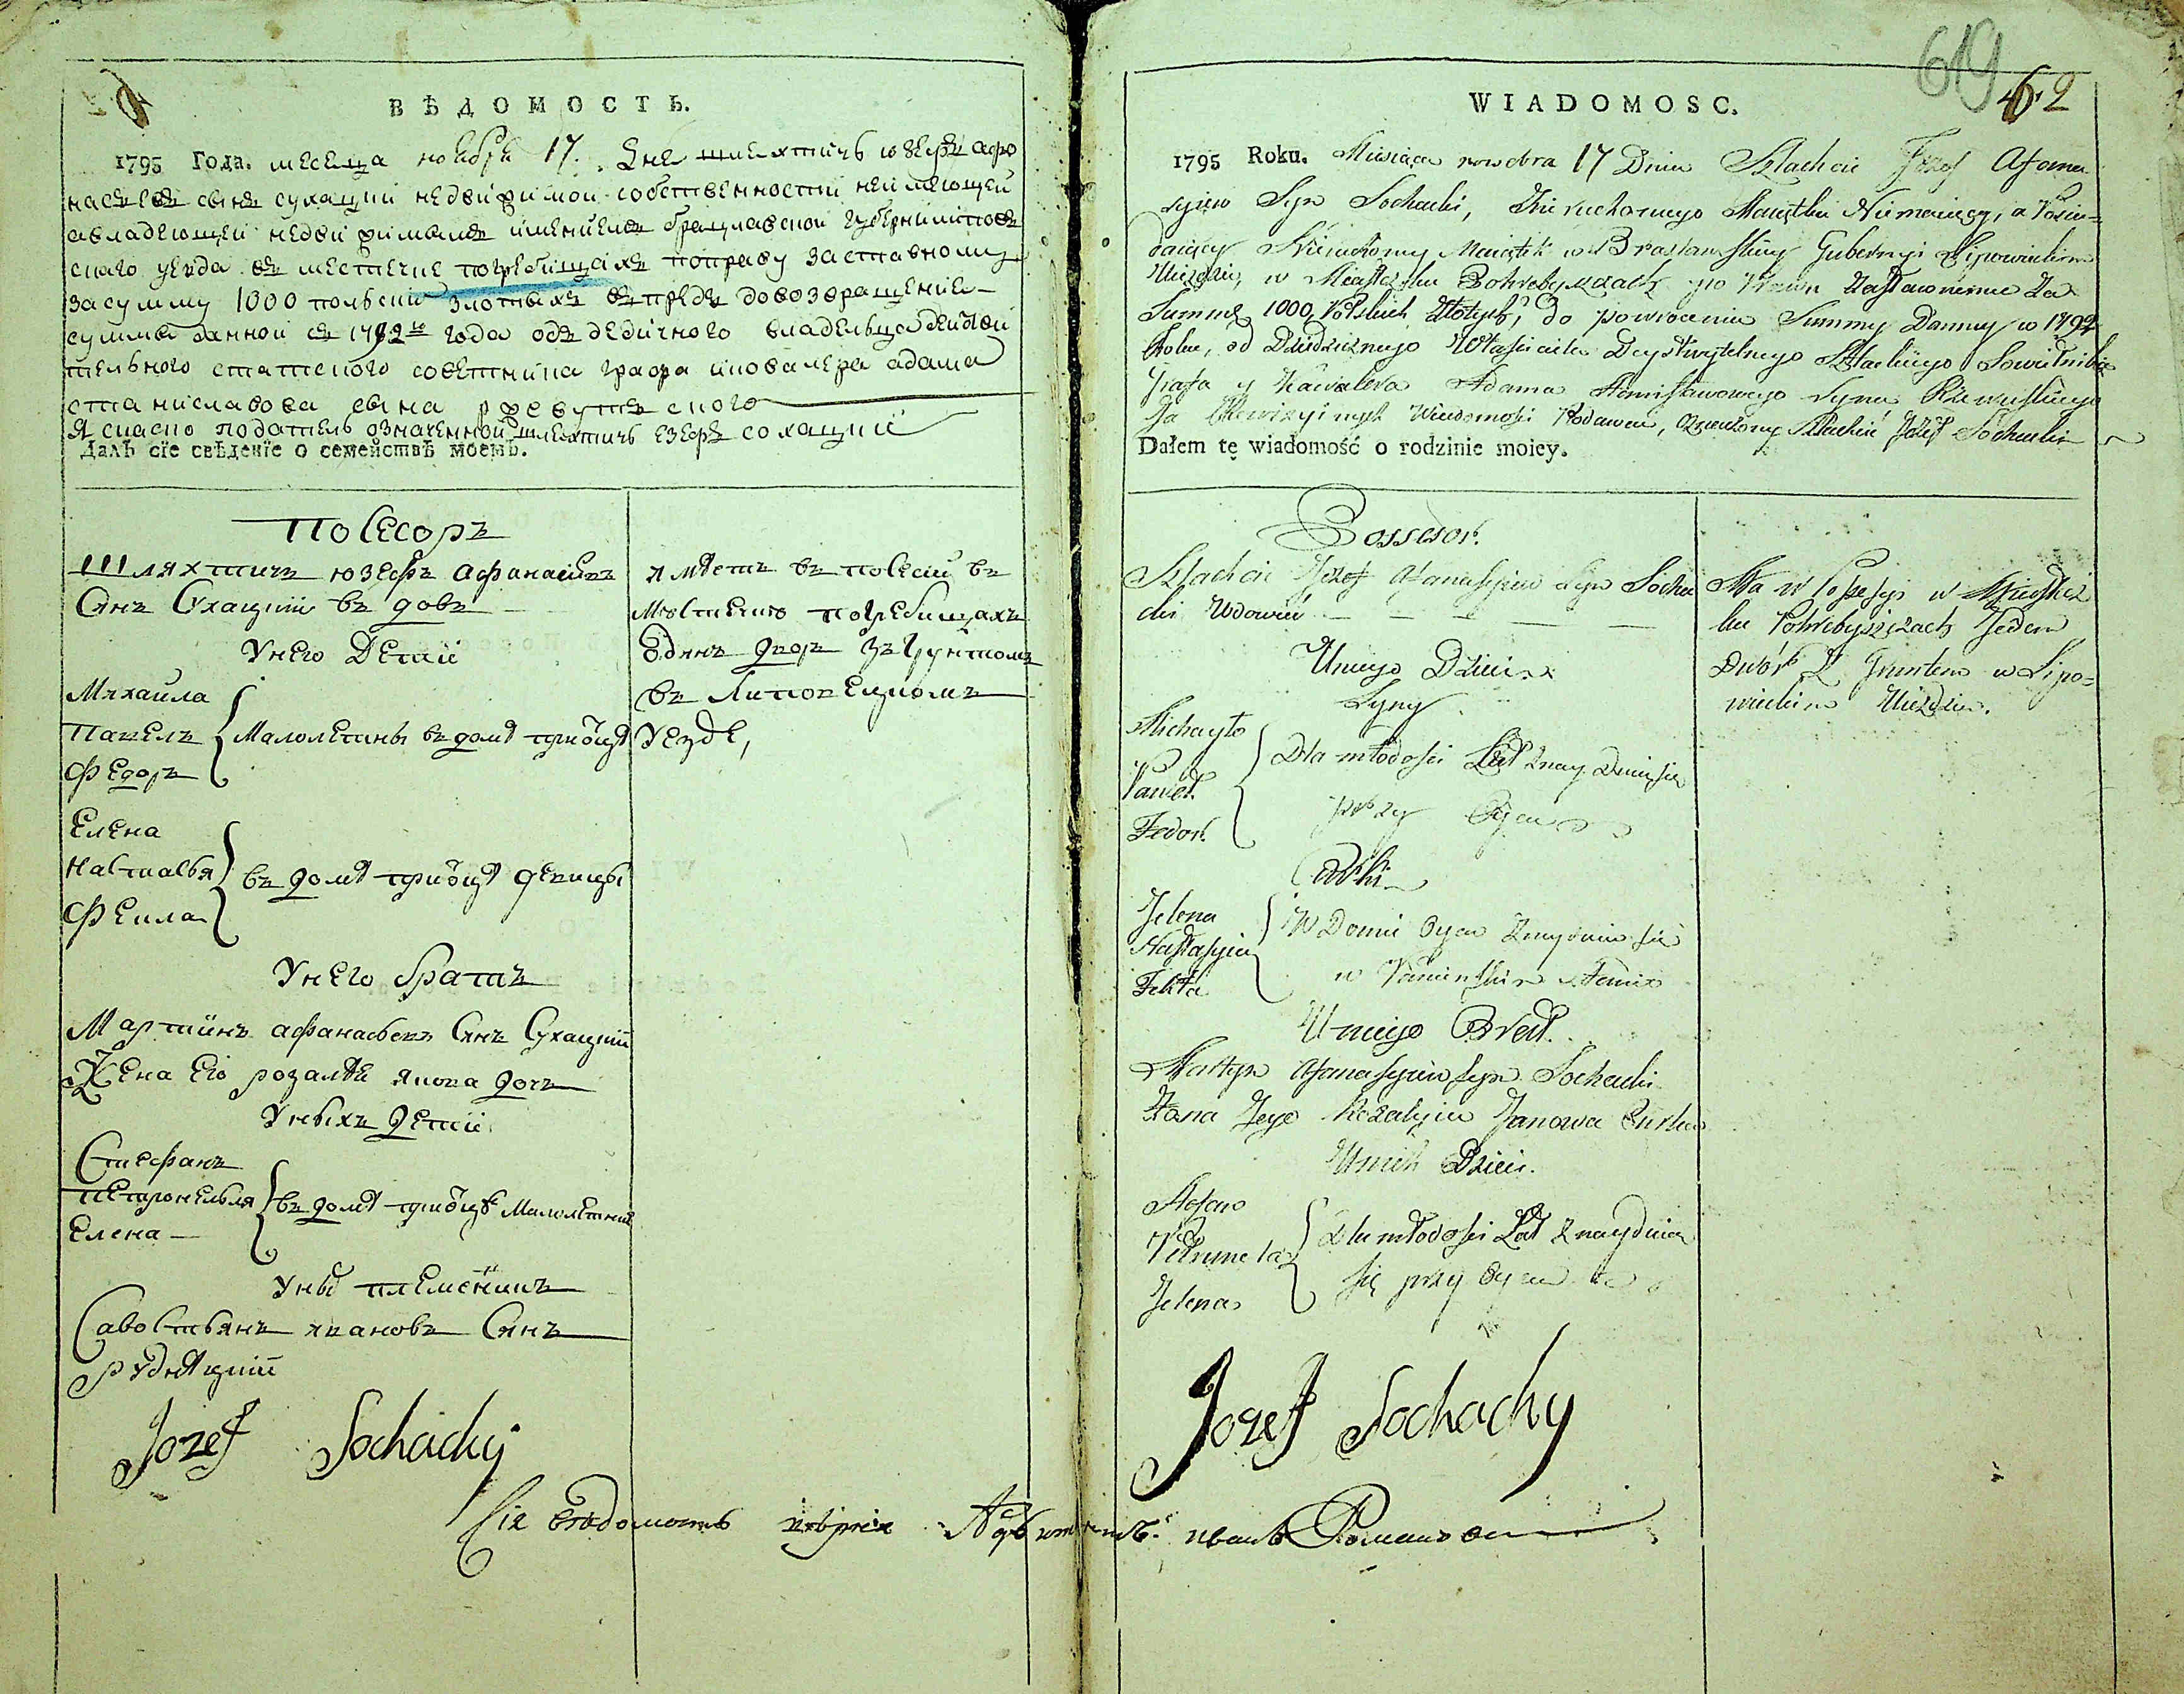 ВѢДОМОСТЬ.
1795 Года. месеца ноебря 17. Дне шлехтичь юзефъ афо
насиевъ сынъ сухацкии недвижимои собственности неимеющеи
авладеющеи недвижимымъ имениемъ брацлавскои губернии липовъ
скаго уезда въ местечке погребищахъ поправу заставному
засумму 1000 польски злотыхъ впредь довозвращение
суммы данной въ 1792м года одъ дедичного владельца деистви
тельного статского советника графа икавалера адама
станиславова сына ржевутского
Я скаско податель означеннои шлехтичь езефъ сохацкии
Далъ сїе свѣденїе о семействѣ моемъ.
Посесоръ
Шляхтичь юзефъ афанасиевъ
Сынъ Сухацкии вдовъ
Унего Детии
Михаила
Павелъ
Федоръ
Малолетны в доме при отце
Елена
Настасья
Фекла
в доме при отце девицы
Унего братъ
Мартинъ афанасьевъ Сынъ Сухацкии
Жена Его розалия якова дочь
Унихъ детии
Стефанъ
петронелья
Елена
в доме при отце Малолетнии
Уны племенникъ
Савостьянъ ивановъ Сынъ
рудницкии
имеетъ в посесии в
Местечко погребищахъ
Одинъ дворъ зъ грунтомъ
въ Липовецкомъ
Уезде,
Jozef Sochacky
Сия ведомость
619
62
WIADOMOSC.
1795 Roku. Miesiąca nowebra 17 Dnia Szlachcic Jozef Afana
syiew Syn Sochacki, Nieruchomego Maiątku Niemaiący, a Posia-
daiący Nieruchomy Maiątek w Bracławskiey Gubernyi Lipowieckim
Uieździe, w Miasteczku Pohrebyszczach po Prawu Zastawnemu Za
Summę 1000 Polskich Złotych, do powrocenia Summy Danney w 1792
Roku, od Dziedzicznego Właściciela Deystwytelnego Statskiego Sowietnika
Grafa y Kawalera Adama Stanisławowego Syna Rzewuskiego
Ja Rewizyinych Wiadomości Podawca, Oznaczony Szlachcic Jozef Sochacki
Dałem tę wiadomość o rodzinie moiey.
Possesor.
Szlachcic Jozef Afanasyiew Syn Socha
cki Wdowiec
Uniego Dzieci
Syny
Michayło
Paweł
Fedor
Dla młodości Lat znayduią się
przy Oycu
Corki
Jelena
Nastasyia
Fekła
W Domu Oyca znayduią się
w Panieńskim stanie
Uniego Brat.
Martyn Afanasyiew syn Sochacki
Żona Jego Rozalyia Janowa Curka
Unich Dzieci.
Stefan
Petrunela
Jelena
Dla młodości Lat znayduią
się przy Oycu
Ma w Possesyi w Miastecz
ku Pohrebyszczach Jeden
Dwór z Gruntem w Lipo-
wieckim Uieździe.
Jozef Sochacky
иванъ Романов